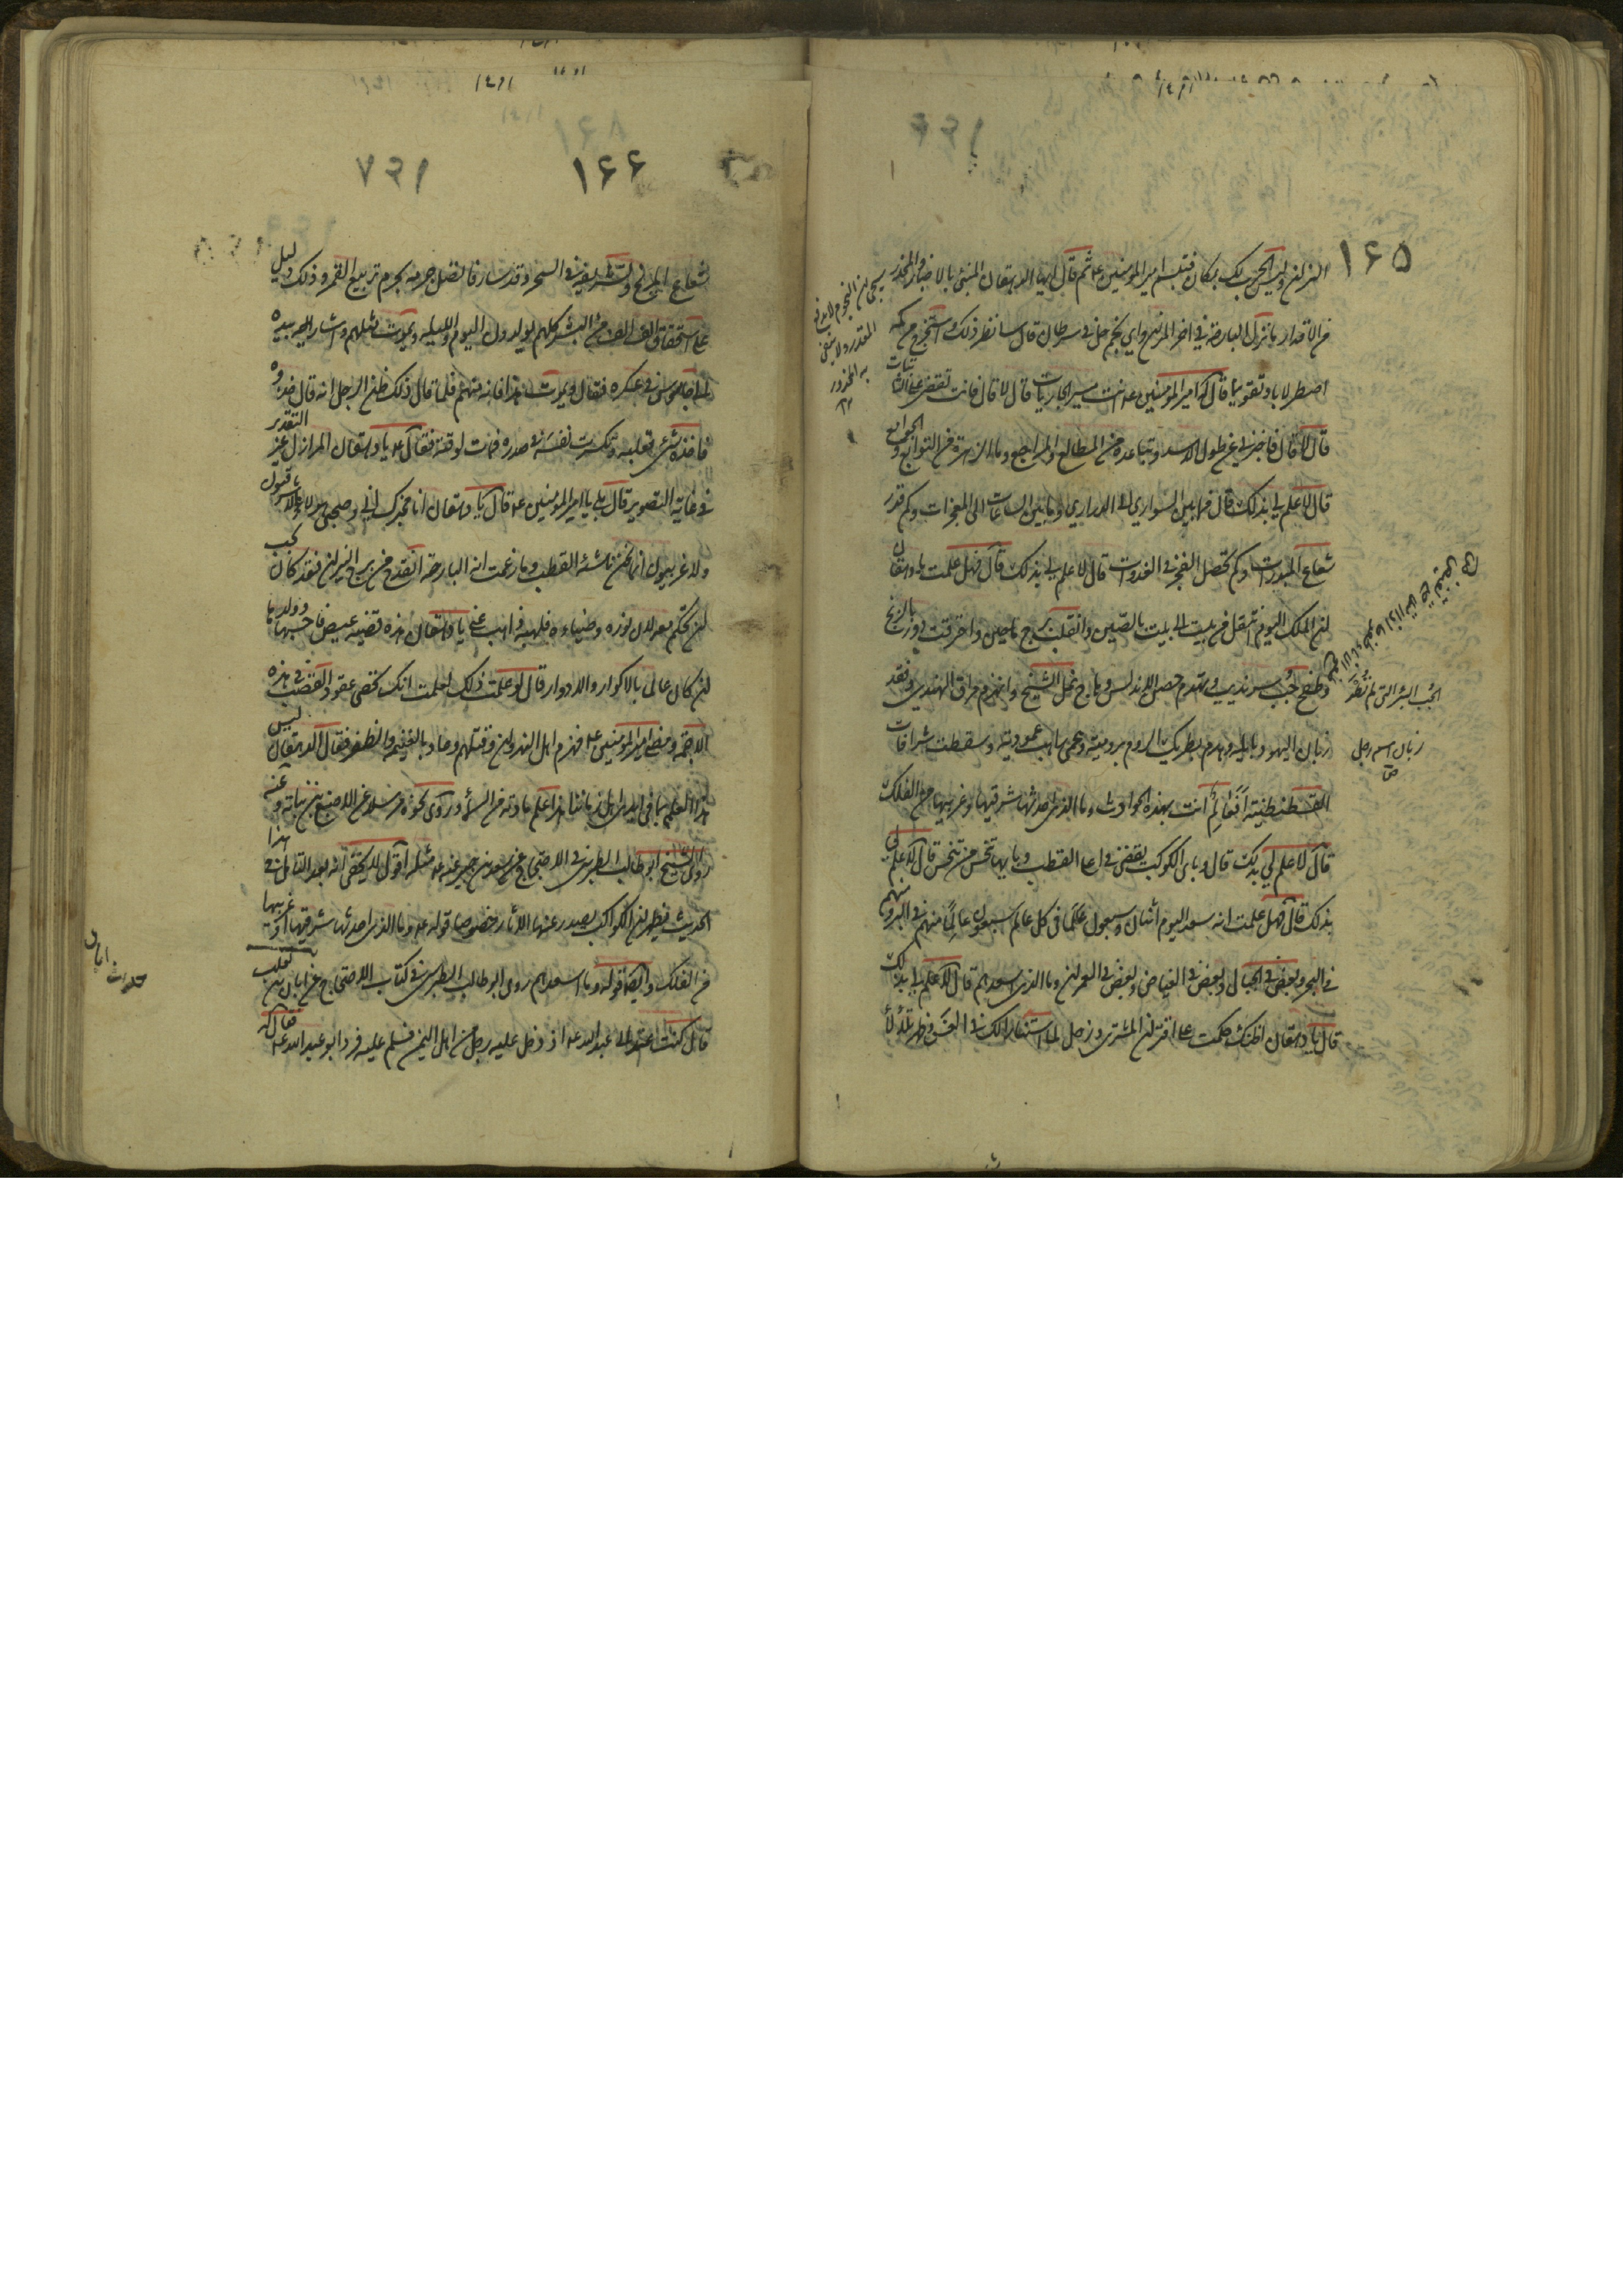 ۱۶۵
النيران وليس الحرب لك بمكان فتبسم امير المؤمنين ع ثم قال ايها الدهقان المنبئ بالاخبار والمحذر
من الاقدار ما نزل البارحة في اخر الميزان واي نجم حل في سرطان قال سانظر ذلك واستخرج من كمه
اصطرلابا وتقويما قال له امير المؤمنين ع انت مسير الجاريات قال لا قال فانت تقضي على الثابتات
قال لا قال فاخبرني عن طول الاسد وتباعده من المطالع والمراجع وما الزهرة من التوابع والجوامع
قال لا علم لي بذلك قال فما بين السواري الى الدراري وما بين الساعات الى المعجزات وكم قدر
شعاع المبدرات وكم تحصل الفجر في الغدوات قال لا علم لي بذلك قال فهل علمت يا دهقان
ان الملك اليوم انتقل من بيت الى بيت بالصين وانقلب برج ماجين واحترقت دور بالزنج
وطفح جب سرنديب وتهدم حصن الاندلس وهاج نمل الشيح وانهزم مراق الهندي وفقد
ربان اليهود بايله وهدم بطريك الروم برومية وعمى راهب عمورية وسقطت شرافات
القسطنطينية أفعالم انت بهذه الحوادث وما الذي احدثها شرقيها او غربيها من الفلك
قال لا علم لي بذلك قال وباي الكواكب يقضى في اعلى القطب وبايها تنحس من تنحس قال لا علم لي
بذلك قال فهل علمت انه سعد اليوم اثنان وسبعون عالما في كل عالم سبعون عالما منهم في البر ومنهم
في البحر وبعض في الجبال وبعض في الغياض وبعض في العمران وما الذي اسعدهم قال لا علم لي بذلك
قال يا دهقان اظنك حكمت على اقتران المشتري وزحل لما استنارا لك في الغسق وظهر تلألأ
الجب البئر التي لم تطو
ربان اسم رجل
۱۶۶
شعاع المريخ وتشريقه في السحر وقد سار فاتصل جرمه بجرم تربيع القمر وذلك دليل
على استحقاق الف الف من البشر كلهم يولدون اليوم والليلة ويموت مثلهم واشار اليه بيده
الى جاسوس في عسكره فقال ويموت هذا فانه منهم فلما قال ذلك ظن الرجل انه قال خذوه
فاخذه شئ بقلبه وتكسرت نفسه في صدره فمات لوقته فقال ع يا دهقان الم ازل عين التقدير
في غاية التصوير قال بلى يا امير المؤمنين ع قال يا دهقان انا مخبرك اني وصحبي هؤلاء لا شرقيون
ولا غربيون انما نحن ناشئة القطب وما زعمت انه البارحة انقدح من برج النيران فقد كان يجب
ان تحكم معه لان نوره وضياءه فلهبه ذاهب عني يا دهقان هذه قضية عيص فاحسبها وولدها
ان كان عالما بالاكوار والادوار قال لو علمت ذلك لعلمت انك تحصى عقود القصب في هذه
الاجمة ومضى امير المؤمنين ع فهزم اهل النهروان وقتلهم وعاد بالغنيمة والظفر فقال الدهقان ليس
هذا العلم بما في ايدي اهل زماننا هذا علم مادته من السماء وروى نحوه مرسلا عن الاصبغ بن نباتة وعنه
روى الشيخ ابو طالب الطبرسي في الاحتجاج عن سعيد بن جبير عنه ع مثله اقول لا يخفى انه بعد التامل في هذا
الحديث فيظهر ان الكواكب يصدر عنها الاثار خصوصا قوله ع وما الذي احدثها شرقيها او غربيها
من الفلك وايضا قوله وما اسعدهم روى ابو طالب الطبرسي في كتاب الاحتجاج عن ابان بن تغلب
قال كنت عند ابي عبد الله ع اذ دخل عليه رجل من اهل اليمن فسلم عليه فرد ابو عبد الله ع فقال له